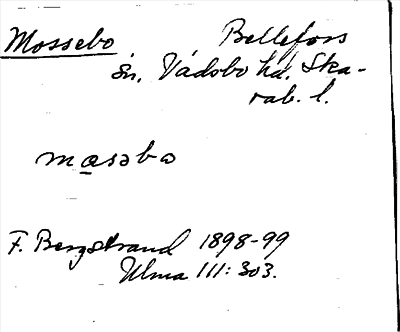 Mossebo Bellefors
sn. Vadsbo hd. Ska-
rab. l.
mɑsəbo
F. Bergstrand 1898-99
Ulma 111: 303.